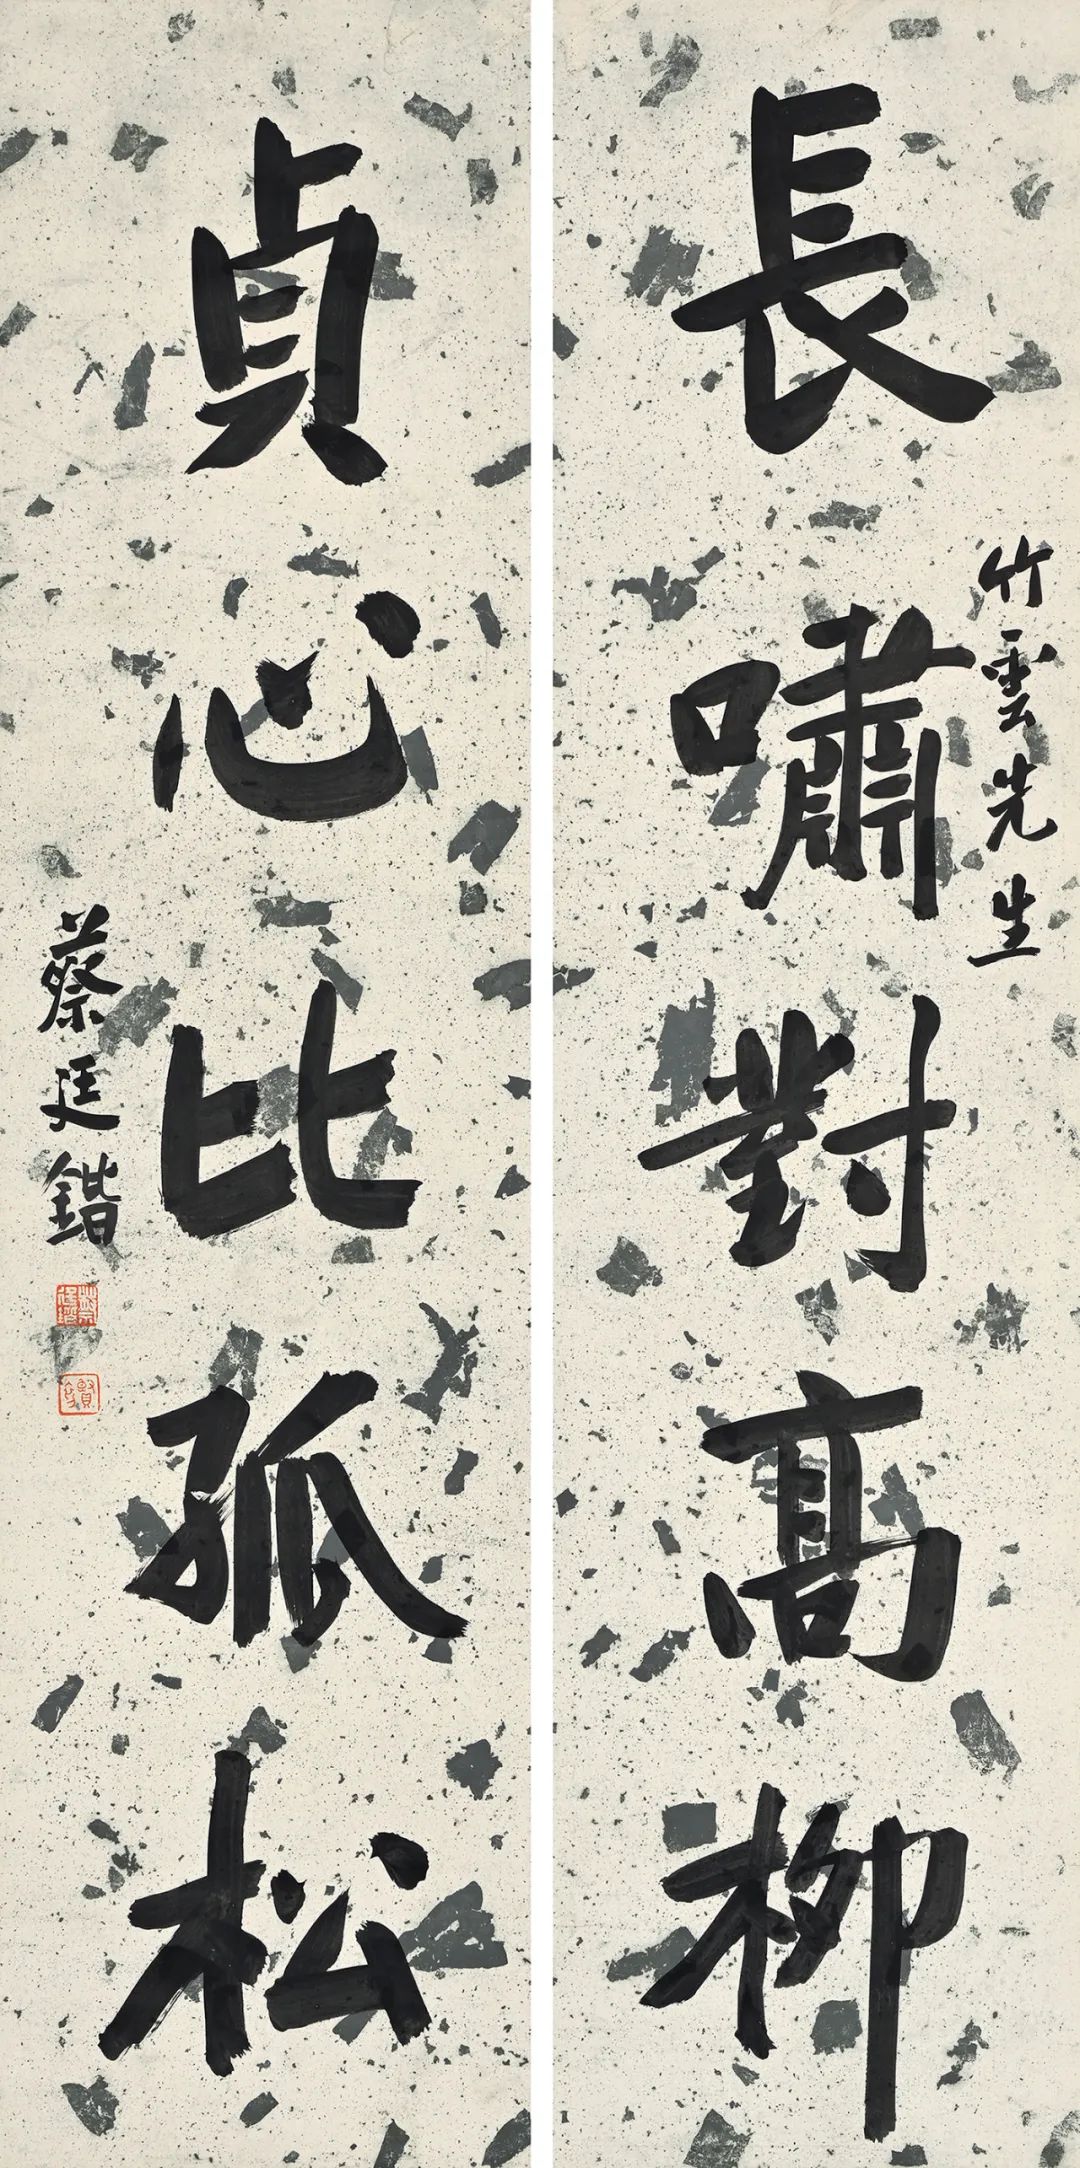 長嘯對高柳
竹雲先生
貞心比孤松
蔡廷鍇
蔡廷鍇